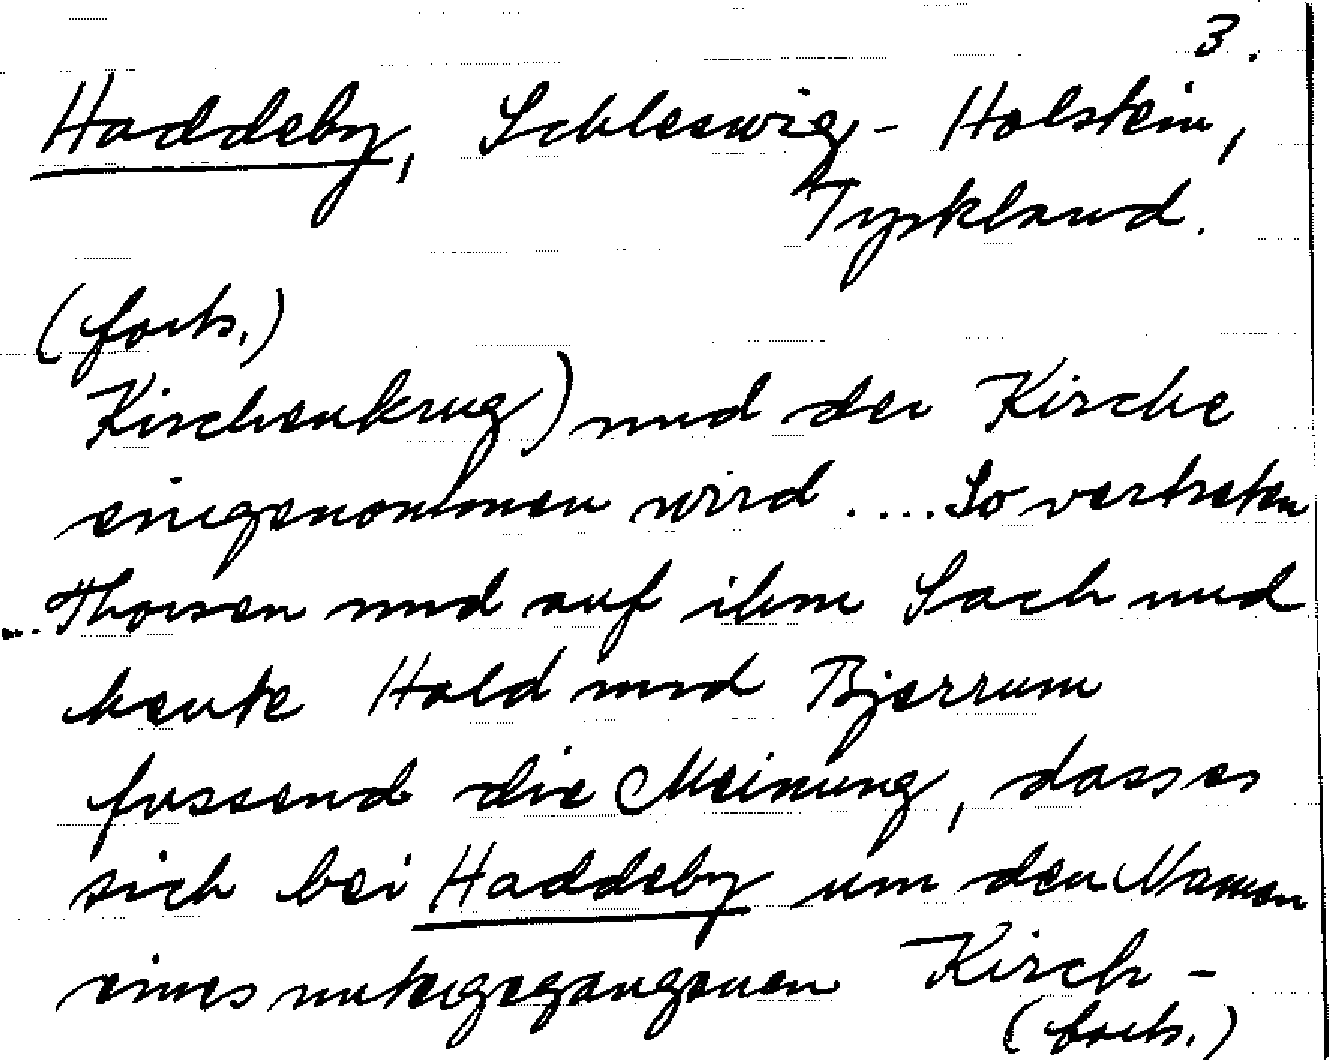 3.
Haddeby, Schleswig-Holstein,
Tyskland.
(forts.)
Kirchenkrug) und der Kirche
eingenommen wird .... So vertreten
... Thorsen und auf ihm Sach und
heute Hald und Bjerrum
fussend die Meinung, dass es
sich bei Haddeby um den Namen
eines untergegangenen Kirch-
(forts.)